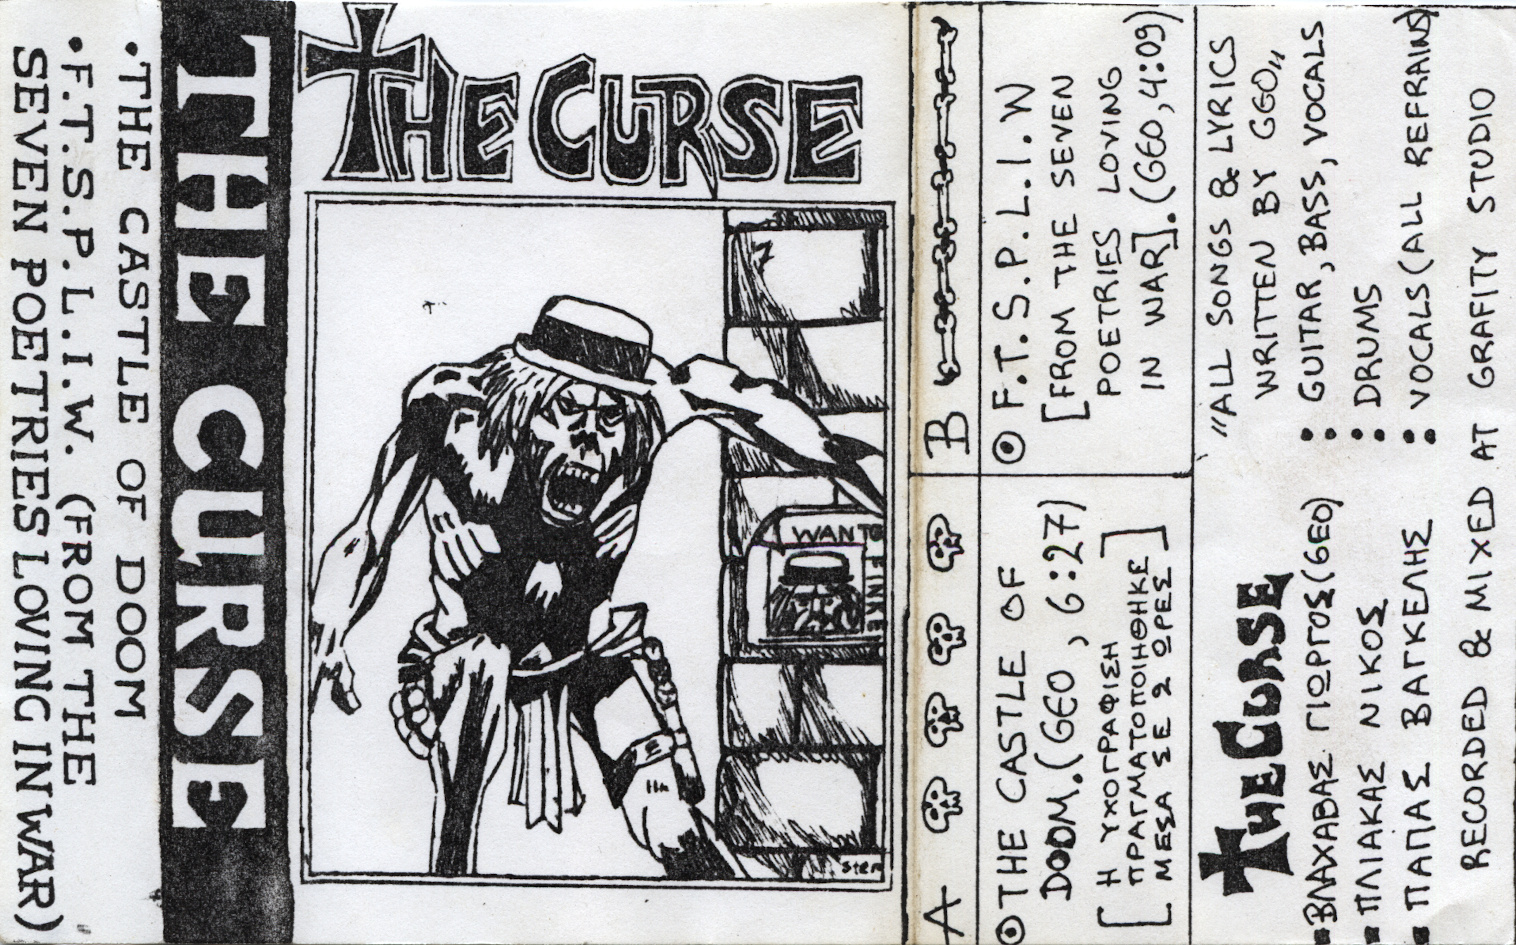 •THE CASTLE OF DOOM
•F.T.S.P.L.I.W. (FROM THE
SEVEN POETRIES LOVING IN WAR)
THE CURSE
THE CURSE
WANT
STEF
A
B
THE CASTLE OF
DOOM.(GEO, 6:27)
[Η ΥΧΟΓΡΑΦΙΣΗ
ΠΡΑΓΜΑΤΟΠΟΙΗΘΗΚΕ
ΜΕΣΑ ΣΕ 2 ΩΡΕΣ]
F.T.S.P.L.I.W
[FROM THE SEVEN
POETRIES LOVING
IN WAR].(GEO, 4:09)
THE CURSE
"ALL SONGS & LYRICS
WRITTEN BY GEO„
▪ΒΛΑΧΑΒΑΣ ΓΙΩΡΓΟΣ(GEO) : GUITAR, BASS, VOCALS
▪ΠΛΙΑΚΑΣ ΝΙΚΟΣ : DRUMS
▪ΠΑΠΑΣ ΒΑΓΚΕΛΗΣ : VOCALS(ALL REFRAINS)
RECORDED & MIXED AT GRAFITY STUDIO